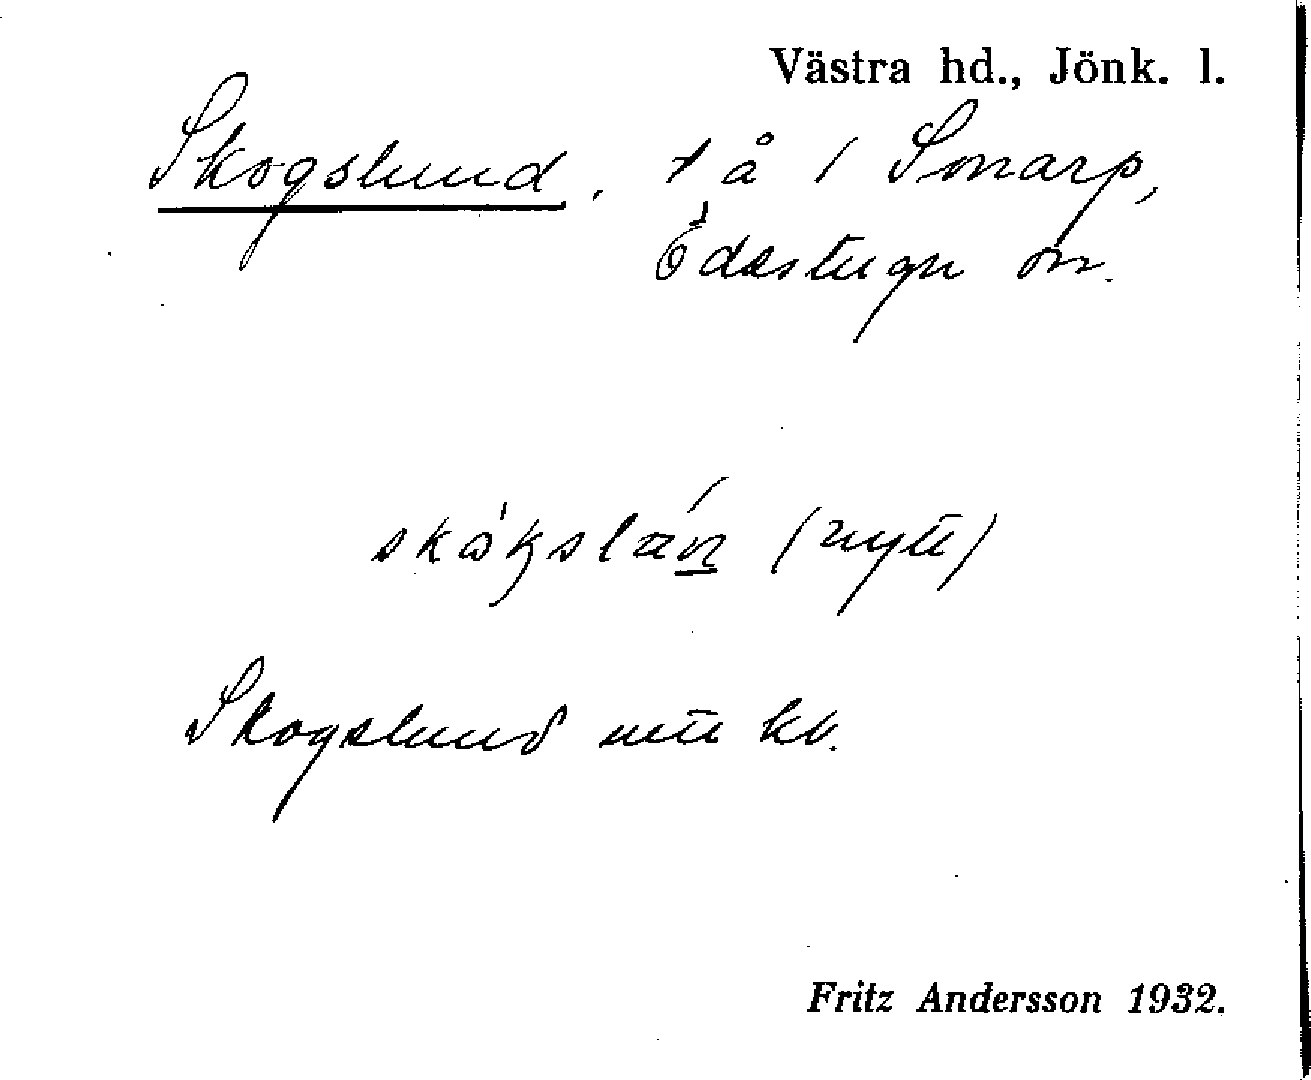 Västra hd., Jönk. l.
Skogslund. t å 1 Smarp,
Ödestugu sn.
(nytt)
Skogslund nytt kv.
Fritz Andersson 1932.